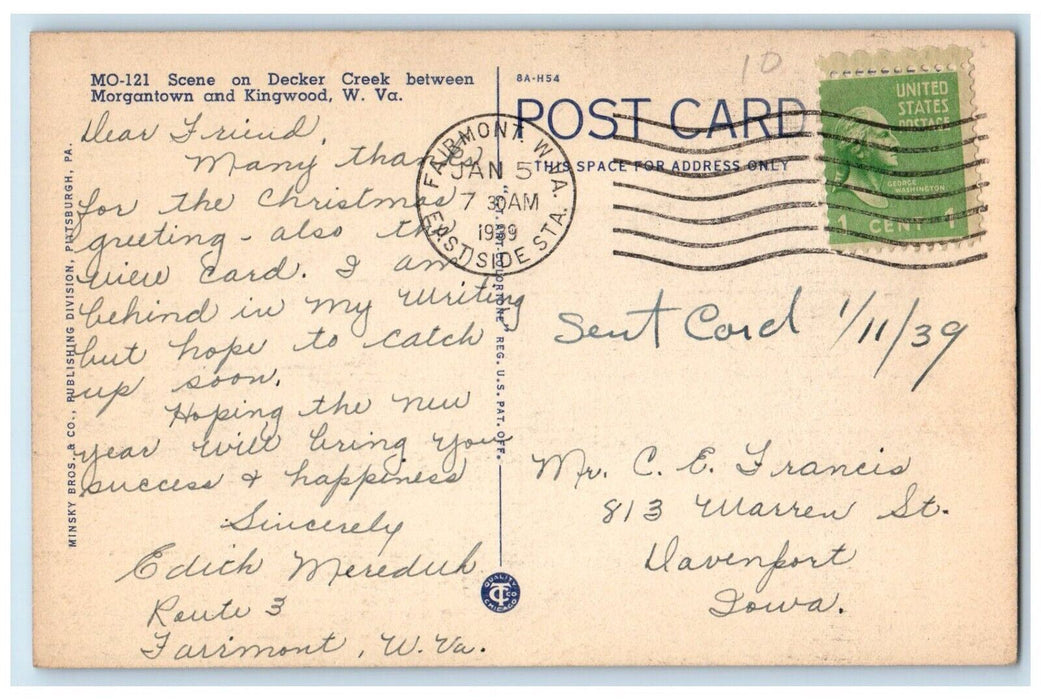 MO-121 Scene on Decker Creek between
Morgantown and Kingwood, W. Va.
Dear Friend,
Many thanks
for the Christmas
greeting - also the
view card. I am
behind in my writing
but hope to catch
up soon.
Hoping the new
year will bring you
success & happiness
Sincerely
Edith Meredith
Route 3
Fairmont, W. Va.
MINSKY BROS. & CO., PUBLISHING DIVISION, PITTSBURGH, PA.
REG. U.S. PAT. OFF.
QUALITY
CT
CHICAGO
8A-H54
POST CARD
THIS SPACE FOR ADDRESS ONLY
FAIRMONT, W. VA.
JAN 5
7 30AM
1939
EASTSIDE STA.
10
UNITED
STATES
POSTAGE
GEORGE
WASHINGTON
1 CENT 1
Sent Card 1/11/39
Mr. C. E. Francis
813 Warren St.
Davenport
Iowa.